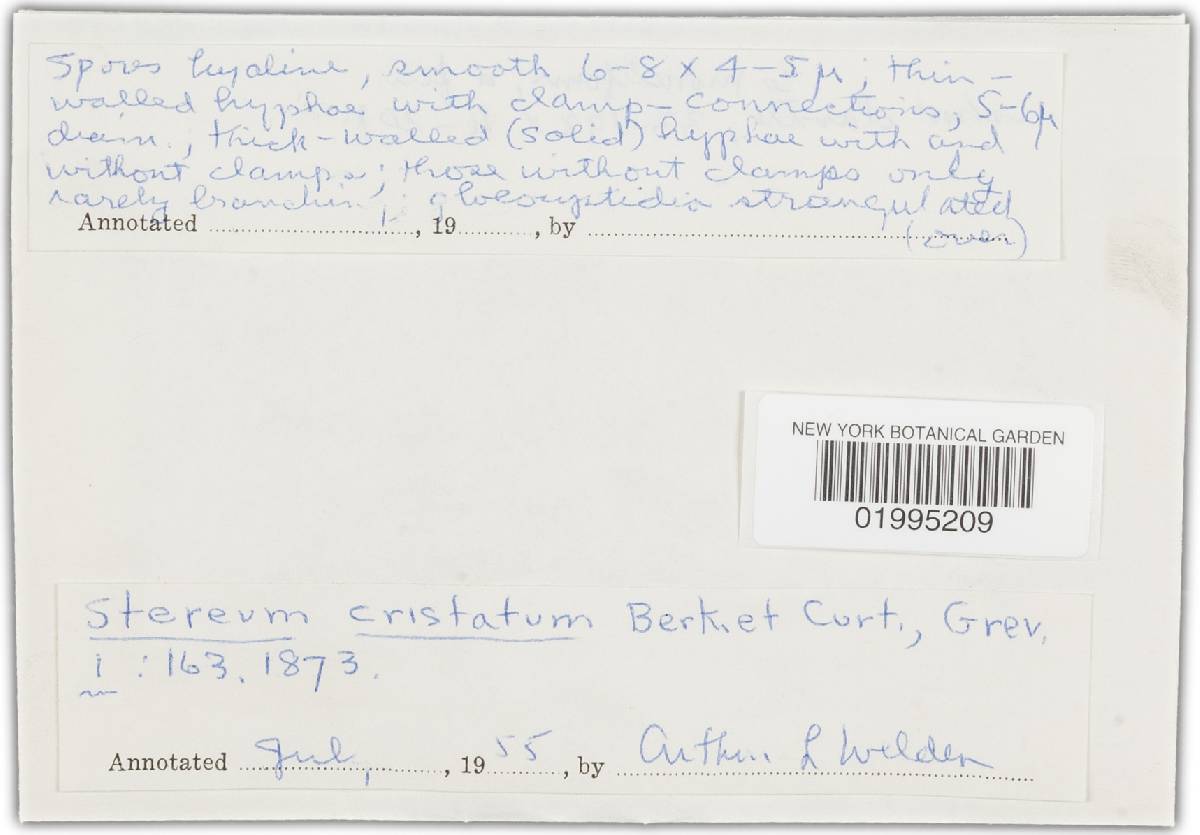 Spores hyaline, smooth 6-8 x 4-5 µ; thin-
walled hyphae with clamp-connections, 5-6µ
diam.; thick-walled (solid) hyphae with and
without clamps; those without clamps only
rarely branching; gloeocystidia strangulated
(over)
Annotated ........, 19........, by ........
NEW YORK BOTANICAL GARDEN
01995209
Stereum cristatum Berk. et Curt., Grev.
1 : 163. 1873.
Annotated July, 1955, by Arthur L Welden